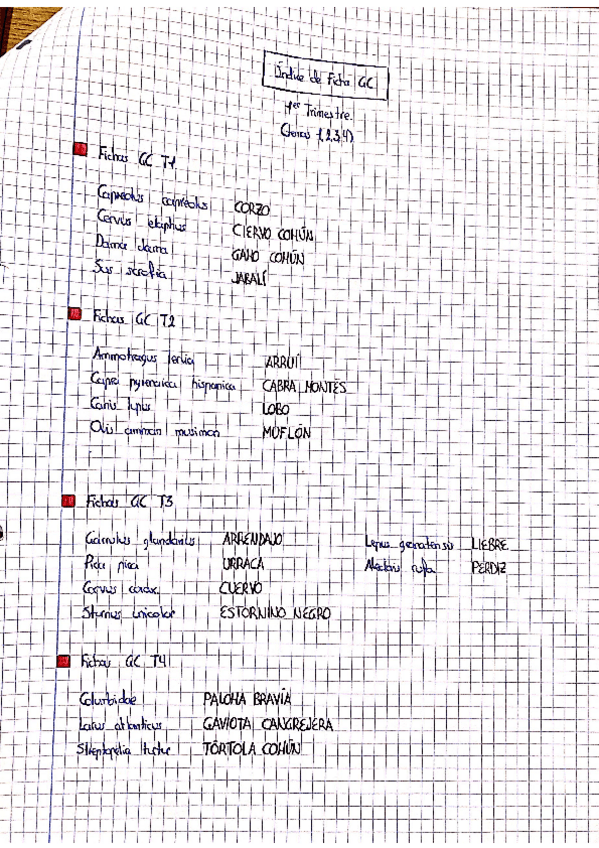 Índice de Ficha GC
1er Trimestre.
(1,2,3,4)
Fichas GC T1
Capreolus capreolus CORZO
Cervus elaphus CIERVO COMÚN
Dama dama GAMO COMÚN
Sus scrofa JABALÍ
Fichas GC T2
Ammotragus lervia ARRUÍ
Capra pyrenaica hispanica CABRA MONTÉS
Canis lupus LOBO
Ovis ammon musimon MUFLÓN
Fichas GC T3
Garrulus glandarius ARRENDAJO Lepus granatensis LIEBRE
Pica pica URRACA Alectoris rufa PERDIZ
Corvus corax CUERVO
Sturnus unicolor ESTORNINO NEGRO
Fichas GC T4
Columbidae PALOMA BRAVÍA
Larus atlanticus GAVIOTA CANGREJERA
Streptopelia turtur TÓRTOLA COMÚN